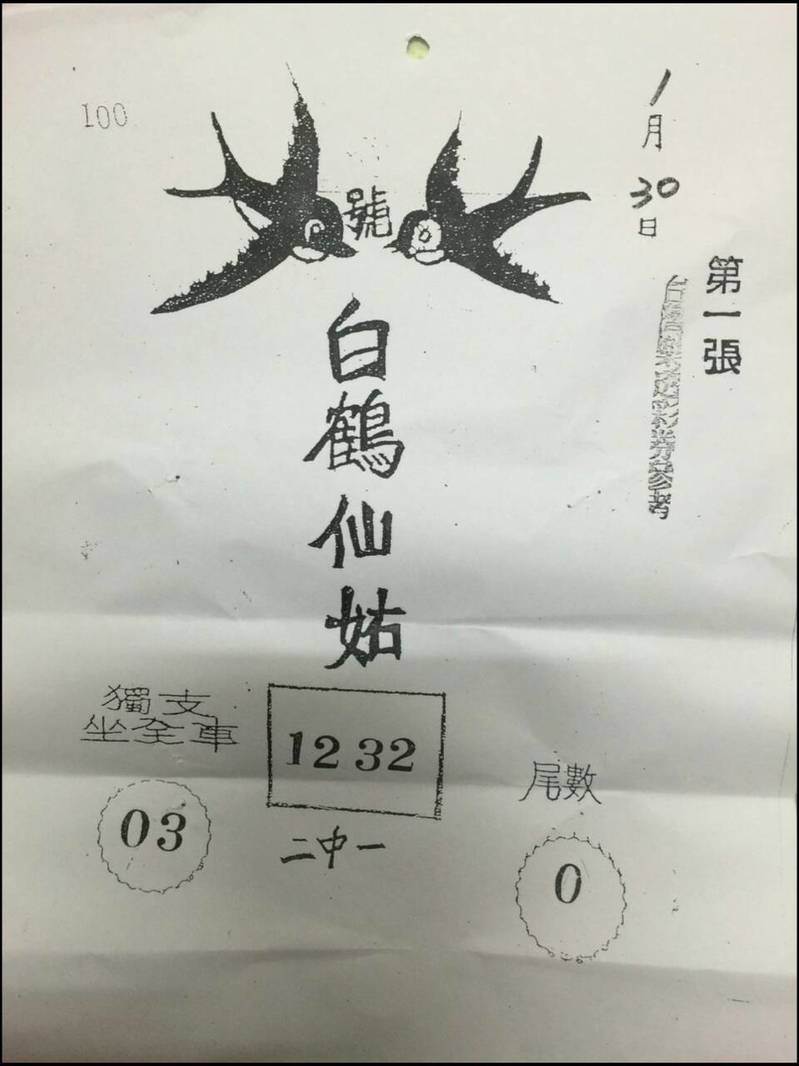 100
號
1月30日
第一張
白鶴仙姑
獨支
坐全車
03
12 32
二中一
尾數
0